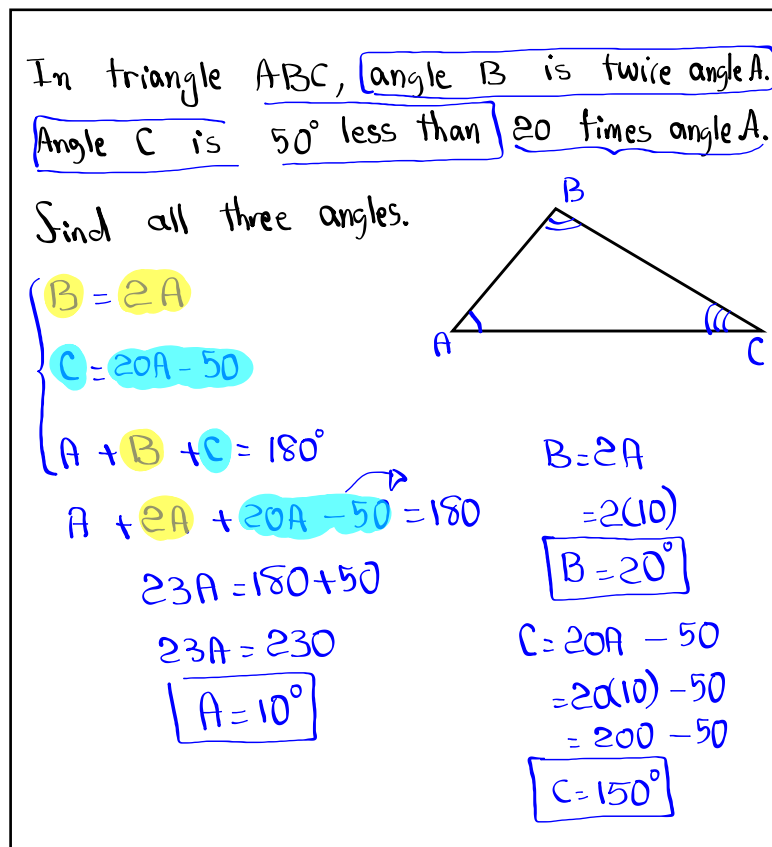 In triangle ABC, angle B is twice angle A.
Angle C is 50° less than 20 times angle A.
Find all three angles.
B
A
C
B = 2A
C = 20A - 50
A + B + C = 180°
A + 2A + 20A - 50 = 180
23A = 180 + 50
23A = 230
A = 10°
B = 2A
= 2(10)
B = 20°
C = 20A - 50
= 20(10) - 50
= 200 - 50
C = 150°